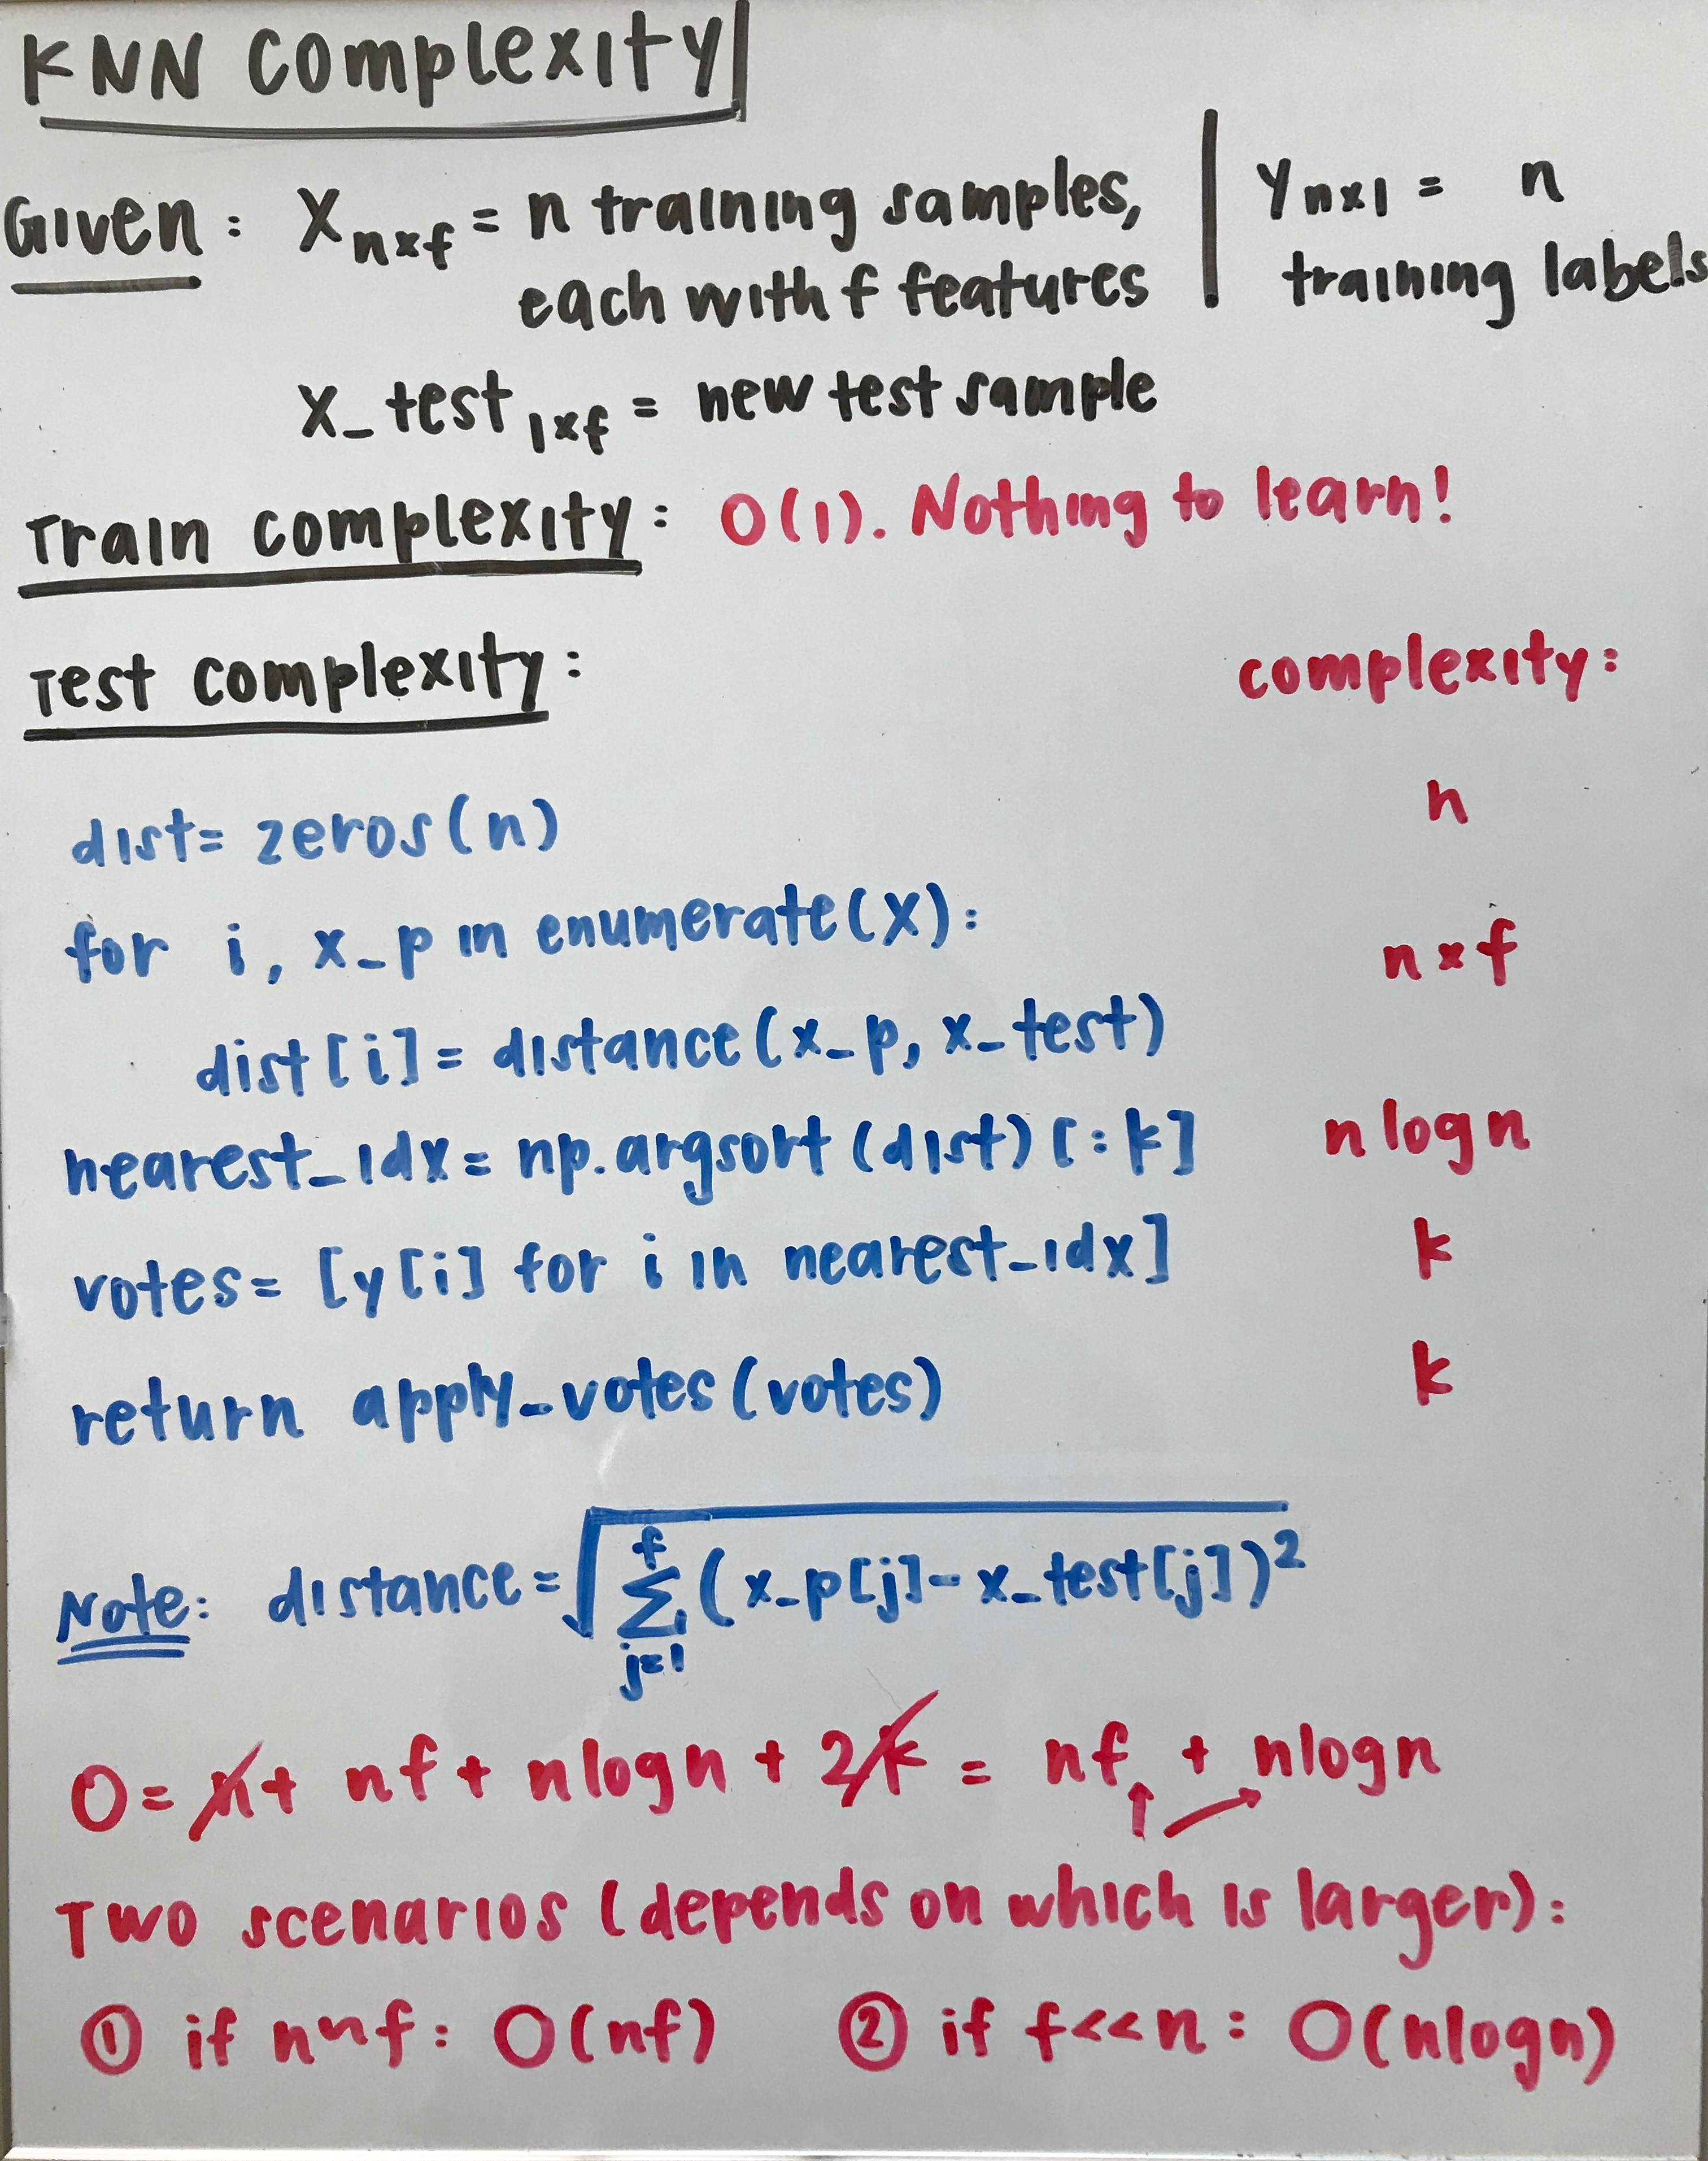 KNN Complexity
Given: X_{n×f} = n training samples, | Y_{n×1} = n
each with f features | training labels
X_test_{1×f} = new test sample
Train complexity: O(1). Nothing to learn!
Test complexity: complexity:
dist= zeros(n) n
for i, x_p in enumerate(X): n×f
dist[i]= distance(x_p, x_test)
nearest_idx= np.argsort(dist)[:k] nlogn
votes= [y[i] for i in nearest_idx] k
return apply_votes(votes) k
Note: distance=√∑_{j=1}^{f}(x_p[j]-x_test[j])²
O= n+ nf + nlogn + 2k = nf + nlogn
Two scenarios (depends on which is larger):
① if n~f: O(nf) ② if f<<n: O(nlogn)